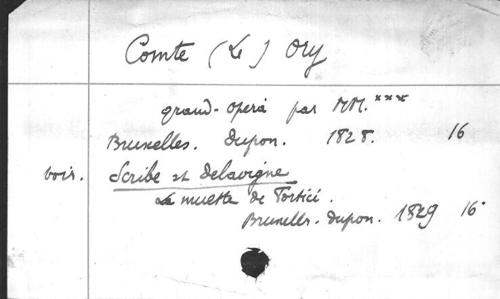 Comte (Le) Ory
grand-opera par MM.***
Bruxelles. Dupon. 1828. 16
voir. Scribe et Delavigne
La muette de Portici.
Bruxelles. Dupon. 1829 16